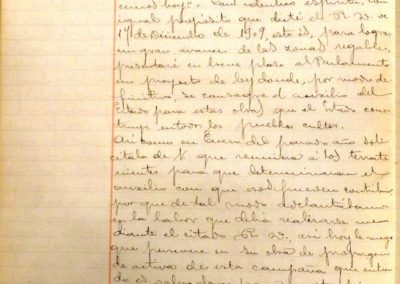 cemos hoy". Con identico espiritu, con
igual propósito que dicté el R. D. de
17 de Diciembre de 1909, esto es, para lograr
un gran avance de las zonas regables,
presentaré en breve plazo al Parlamento
un proyecto de ley donde, por modo de
finitivo, se consagre el auxilio del
Estado para estas obras que el Estado cons
truye en todos los pueblos cultos.
Asi como en Enero del pasado año soli
citaba de V. que reuniera á los terrate
nientes para que determinaran el
auxilio con que podian contribuir
por que de tal modo adelantabamos
en la labor que debia realizarse me
diante el citado R. D. asi hoy le ruego
que persevere en su obra de propagan
da activa de esta campaña que entien
do es